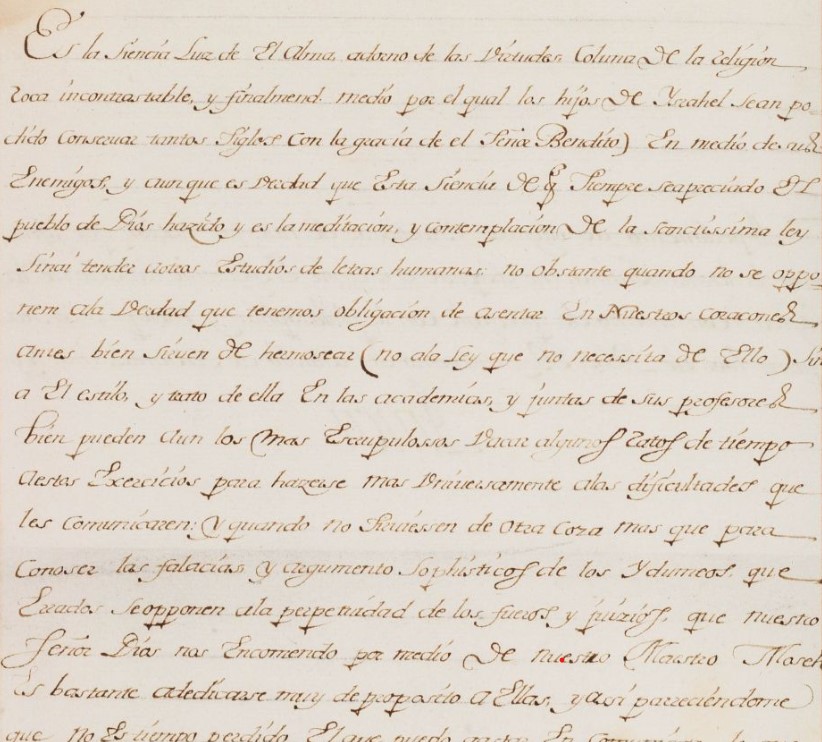 Es la siencia Luz de El Alma, adorno de las Virtudes, Coluna De la religión
roca incontrastable, y finalmend. medio por el qual los hijos De Ysrahel sean po-
dido Conservar tantos Siglos Con la gracia de el Señor Bendito) En medio de sus
Enemigos, y aunque es Verdad que Esta siencia De q Siempre seapreciado El
pueblo de Dios hazido y es la meditación, y contemplación De la sanctissima ley
Sin tender aotros Estudios de letras humanas: no obstante quando no se oppo-
nem ala Verdad que tenemos obligación de asentar En Nuestros coraçones
antes bien sirven De hermosear (no ala Ley que no necessita De Ello) Sin
a El estilo, y trato de ella En las academias, y juntas de sus profesores
bien pueden aun los mas Escrupulossos Vacar algunos ratos de tiempo
aestos Exercicios para hazerse mas Universamente alas dificultades que
les Comunicaren: Y quando no Sirviessen de Otra Coza mas que para
Conoser las falacias, y argumento Sophisticos de los Ydumeos, que
Errados Seopponen ala perpetuidad de los fueros y juizios, que nuestro
Señor Dios nos Encomendo por medio De nuestro Maestro Moseh
Es bastante adedicarse muy de proposito a Ellas, y assi parreciendome
que no Es tiempo perdido El que puedo gastar En Comunicar